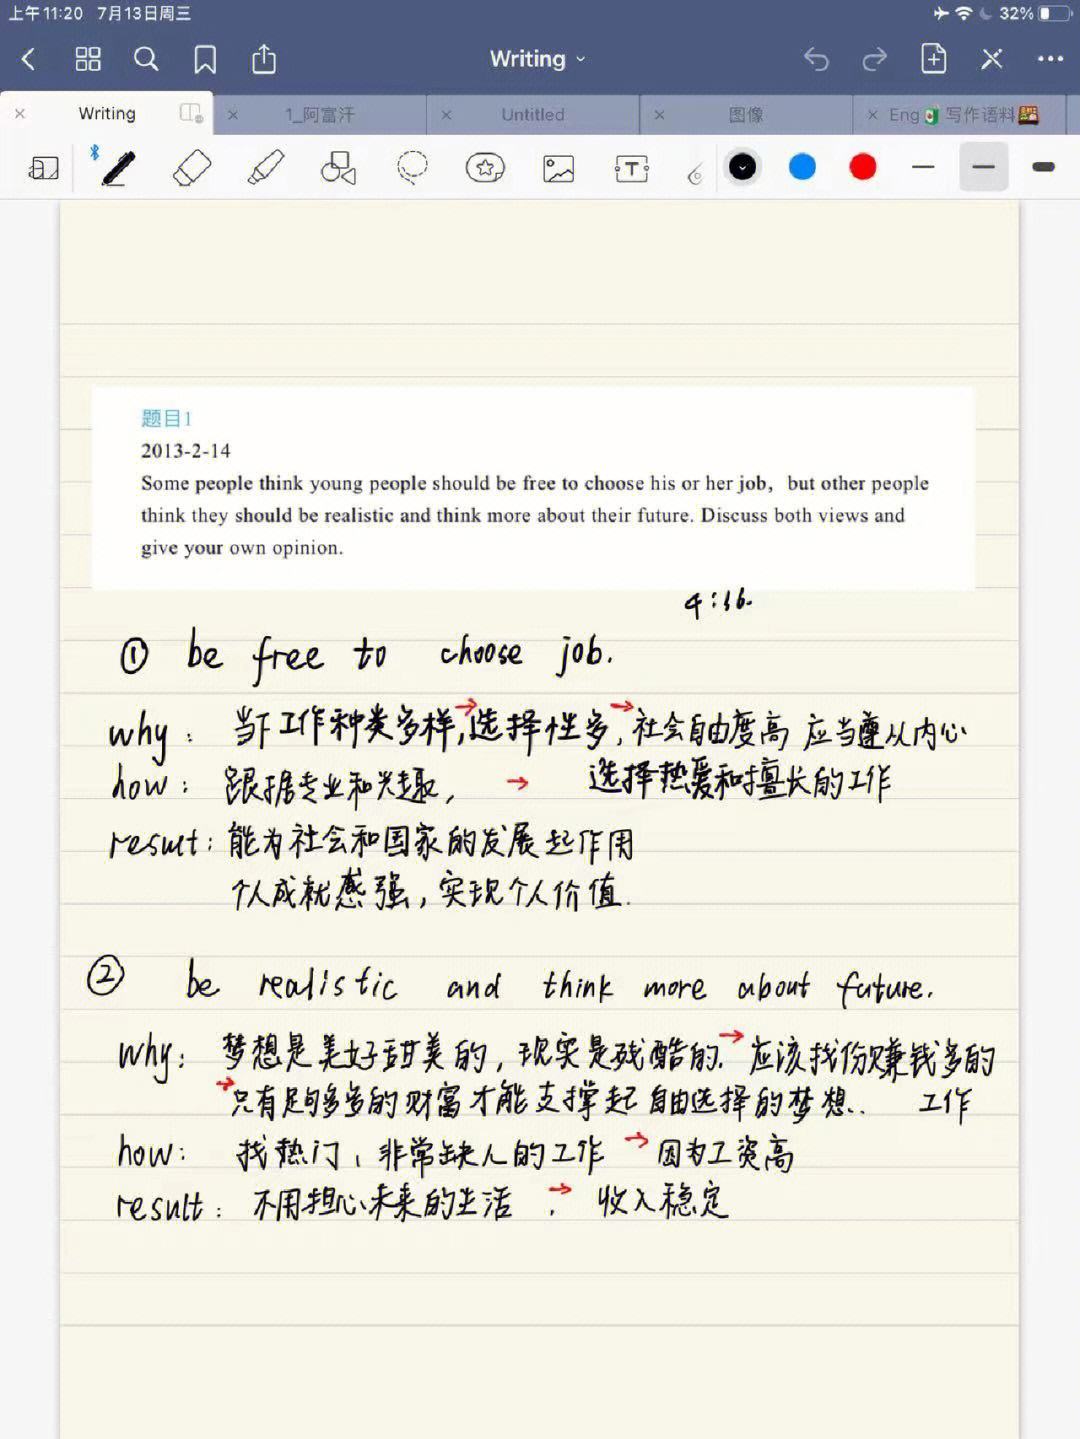 上午11:20 7月13日周三 32%
Writing
Writing 1_阿富汗 Untitled 图像 Eng 写作语料
题目1
2013-2-14
Some people think young people should be free to choose his or her job, but other people
think they should be realistic and think more about their future. Discuss both views and
give your own opinion.
4:36.
① be free to choose job.
why: 当下工作种类多样,→选择性多,→社会自由度高 应当遵从内心
how: 跟据专业和兴趣, → 选择热爱和擅长的工作
result: 能为社会和国家的发展起作用
个人成就感强,实现个人价值.
② be realistic and think more about future.
why: 梦想是美好甜美的,现实是残酷的.→应该找份赚钱多的
→只有足够多多的财富才能支撑起自由选择的梦想.. 工作
how: 找热门、非常缺人的工作 →因为工资高
result: 不用担心未来的生活. → 收入稳定